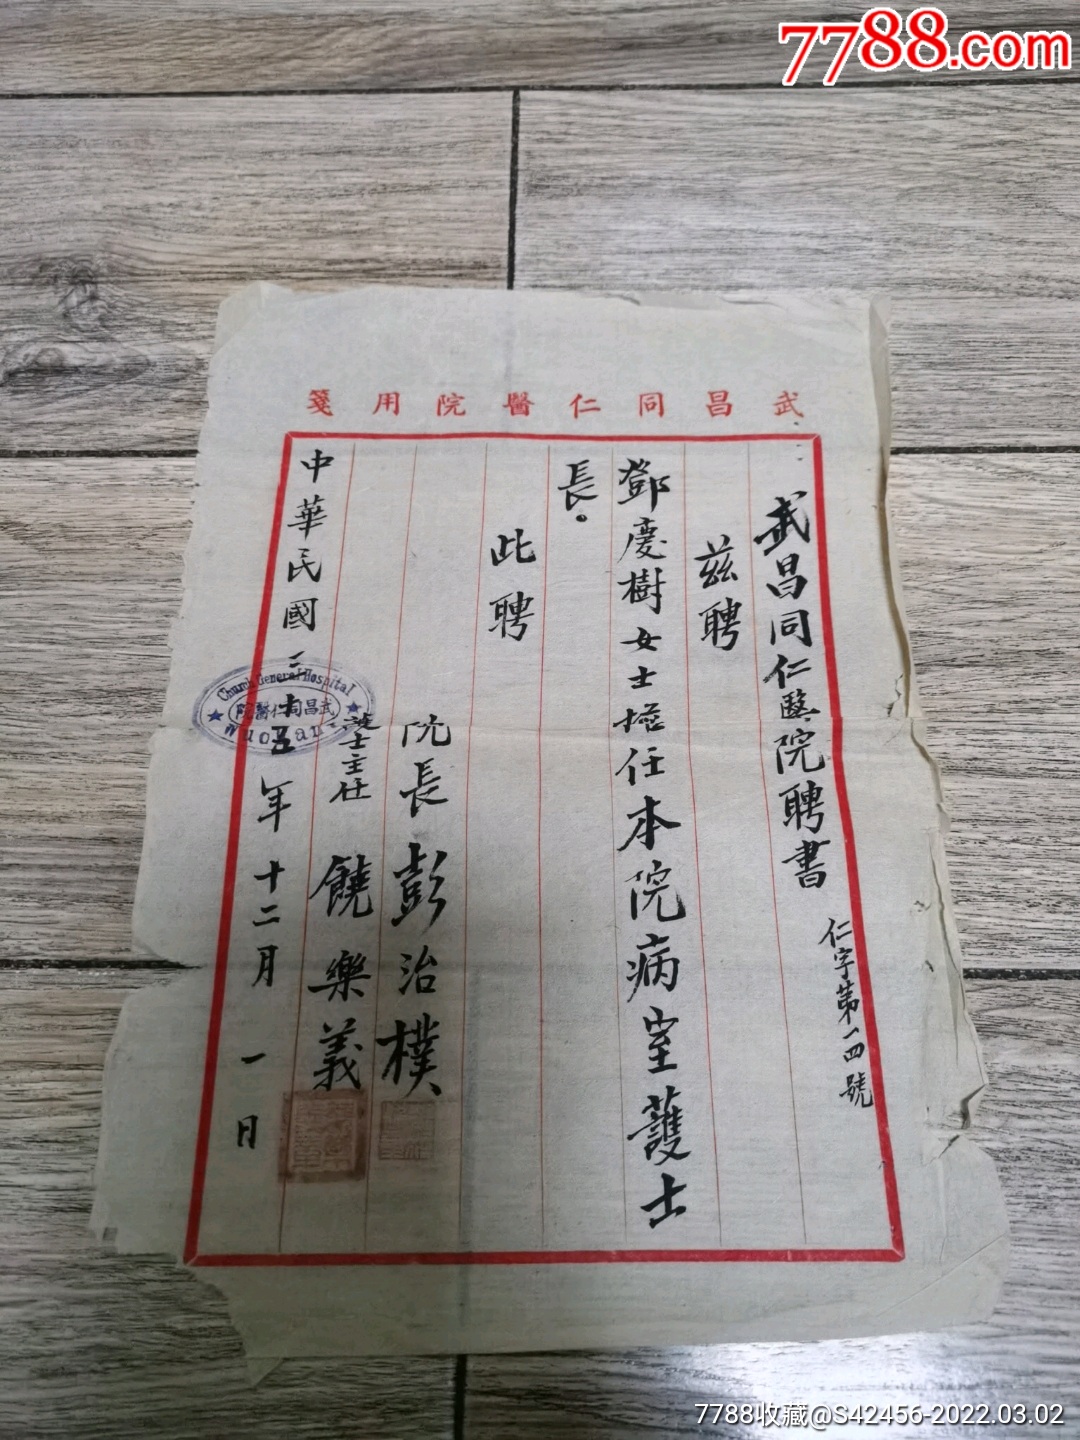 7788.com
武昌同仁醫院用箋
武昌同仁醫院聘書
仁字第一四號
茲聘
鄧慶樹女士擔任本院病室護士
長。
此聘
院長彭治樸
護士主任饒樂義
中華民國三十五年十二月一日
Church General Hospital
武昌同仁醫院
7788收藏@S42456-2022.03.02